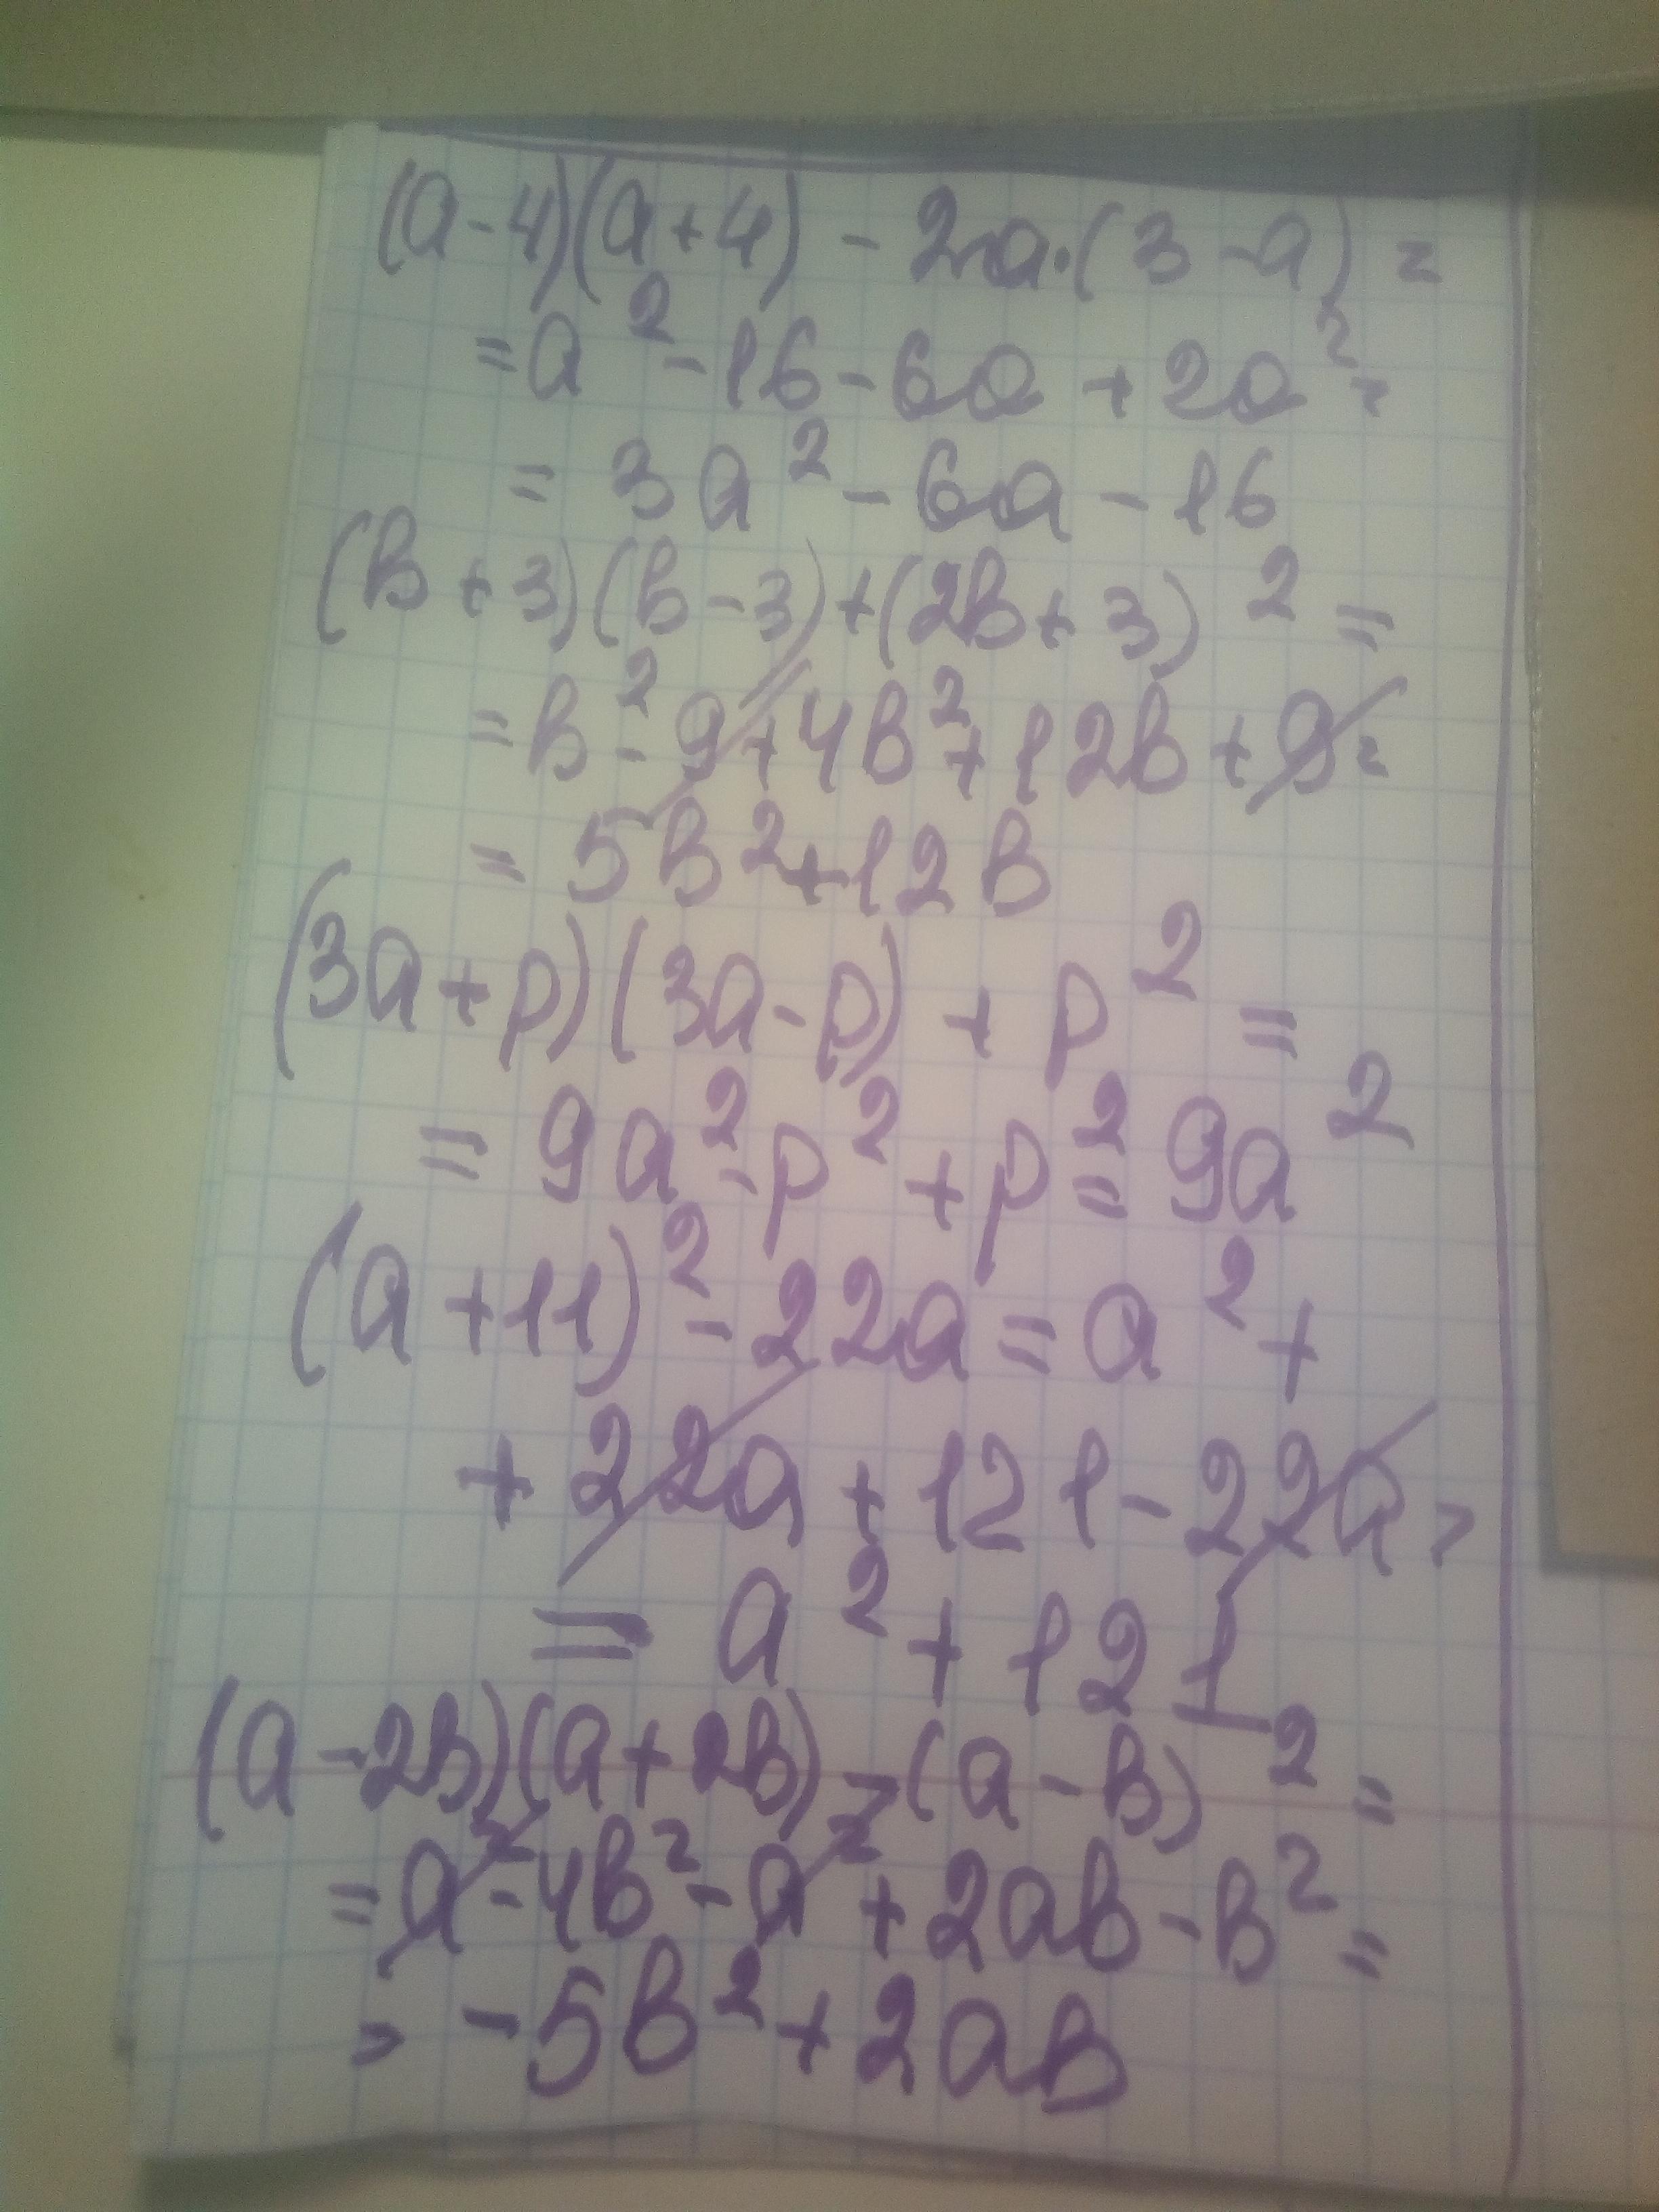 (a-4)(a+4) - 2a·(3-a) =
= a² - 16 - 6a + 2a² =
= 3a² - 6a - 16
(в + 3)(в - 3) + (2в + 3)² =
= в² - 9 + 4в² + 12в + 9 =
= 5в² + 12в
(3a + p)(3a - p) + p² =
= 9a² - p² + p² = 9a²
(a + 11)² - 22a = a² +
+ 22a + 121 - 22a =
= a² + 121
(a - 2в)(a + 2в) - (a - в)² =
= a² - 4в² - a² + 2aв - в² =
= -5в² + 2aв